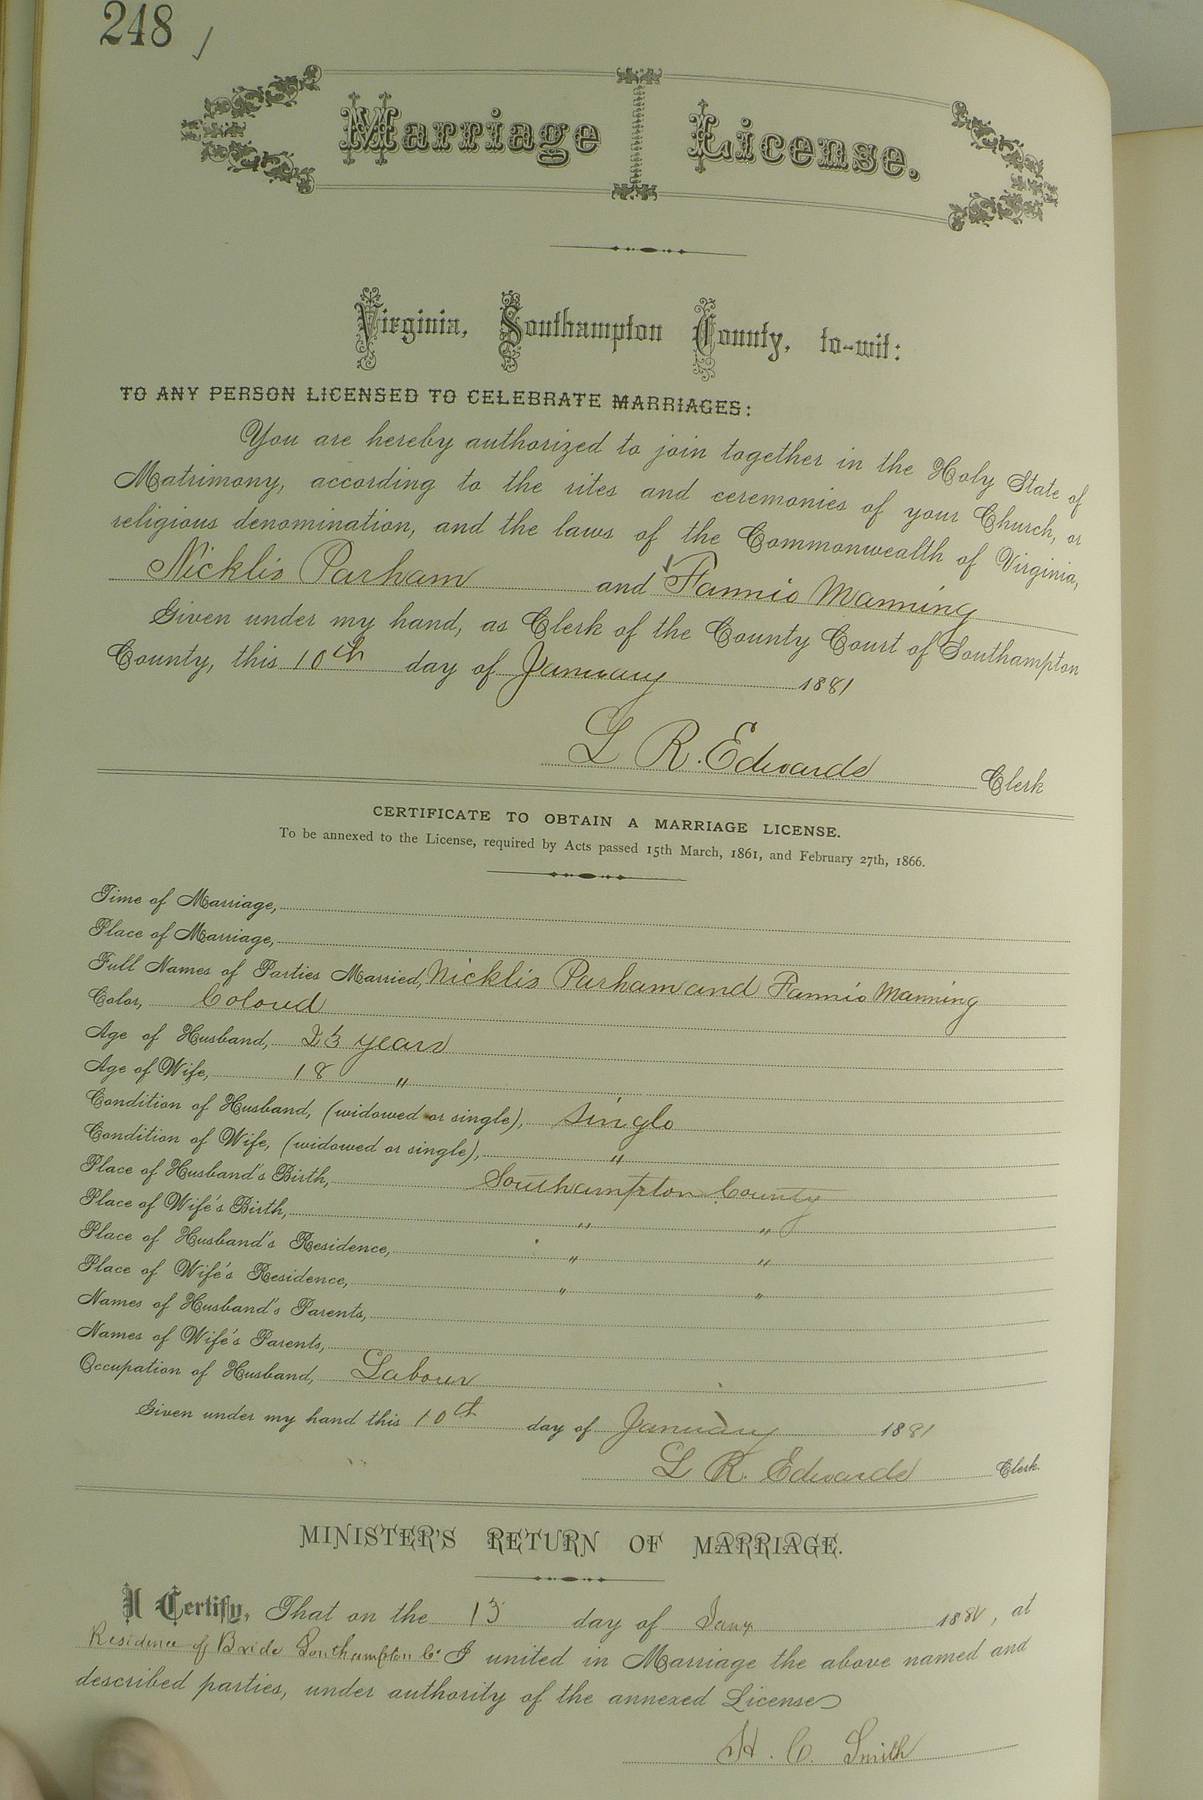 248
Marriage License.
Virginia, Southampton County, to-wit:
TO ANY PERSON LICENSED TO CELEBRATE MARRIAGES:
You are hereby authorized to join together in the Holy State of
Matrimony, according to the rites and ceremonies of your Church, or
religious denomination, and the laws of the Commonwealth of Virginia,
Nicklis Parham and Fannie Manning
Given under my hand, as Clerk of the County Court of Southampton
County, this 10th day of January 1881
L R. Edwards Clerk
CERTIFICATE TO OBTAIN A MARRIAGE LICENSE.
To be annexed to the License, required by Acts passed 15th March, 1861, and February 27th, 1866.
Time of Marriage,
Place of Marriage,
Full Names of Parties Married, Nicklis Parham and Fannie Manning
Color, Colored
Age of Husband, 23 years
Age of Wife, 18 "
Condition of Husband, (widowed or single), single
Condition of Wife, (widowed or single), "
Place of Husband's Birth, Southampton County
Place of Wife's Birth, " "
Place of Husband's Residence, " "
Place of Wife's Residence, " "
Names of Husband's Parents,
Names of Wife's Parents,
Occupation of Husband, Labour
Given under my hand this 10th day of January 1881
L R. Edwards Clerk.
MINISTER'S RETURN OF MARRIAGE.
I Certify, That on the 13 day of Jany 188 , at
Residence of Bride Southampton Co I united in Marriage the above named and
described parties, under authority of the annexed License
H. C. Smith